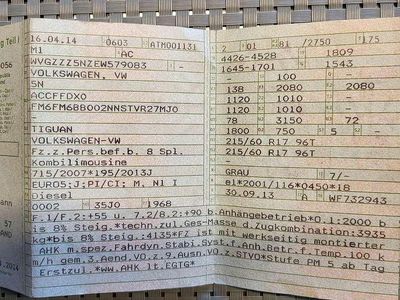 16.04.14 0603 ATM001131
M1 AC
WVGZZZ5NZEW579083 -
VOLKSWAGEN, VW
5N
ACCFFDX0
FM6FM6BB002NNSTVR27MJ0
-
TIGUAN
VOLKSWAGEN-VW
Fz.z.Pers.bef.b. 8 Spl.
Kombilimousine
715/2007*195/2013J
EURO5;J;PI/CI: M, N1 I
Diesel
0002 35J0 1968
2 01 81 /2750 175
4426-4528 1809
1645-1701 1543
- 100 -
138 2080 2080
1120 1010 -
1120 1010 -
78 3150 72
1800 750 5 -
215/60 R17 96T
215/60 R17 96T
-
GRAU 7/-
e1*2001/116*0450*18
30.09.13 A WF732943
F.1/F.2:+55 u. 7.2/8.2:+90 b.Anhängebetrieb*O.1:2000 b
is 8% Steig.*techn.zul.Ges-Masse d.Zugkombination:3935
kg*bis 8% Steig.:4135*Fz ist m.werkseitig montierter
AHK m.spez.Fahrdyn.Stabi.Syst.f.Anh.Betr.f.Temp.100 k
m/h gem.3.Aend.VO.z.9.Ausn.VO.z.STVO*Stufe PM 5 ab Tag
Erstzul.*ww.AHK lt.EGTG*